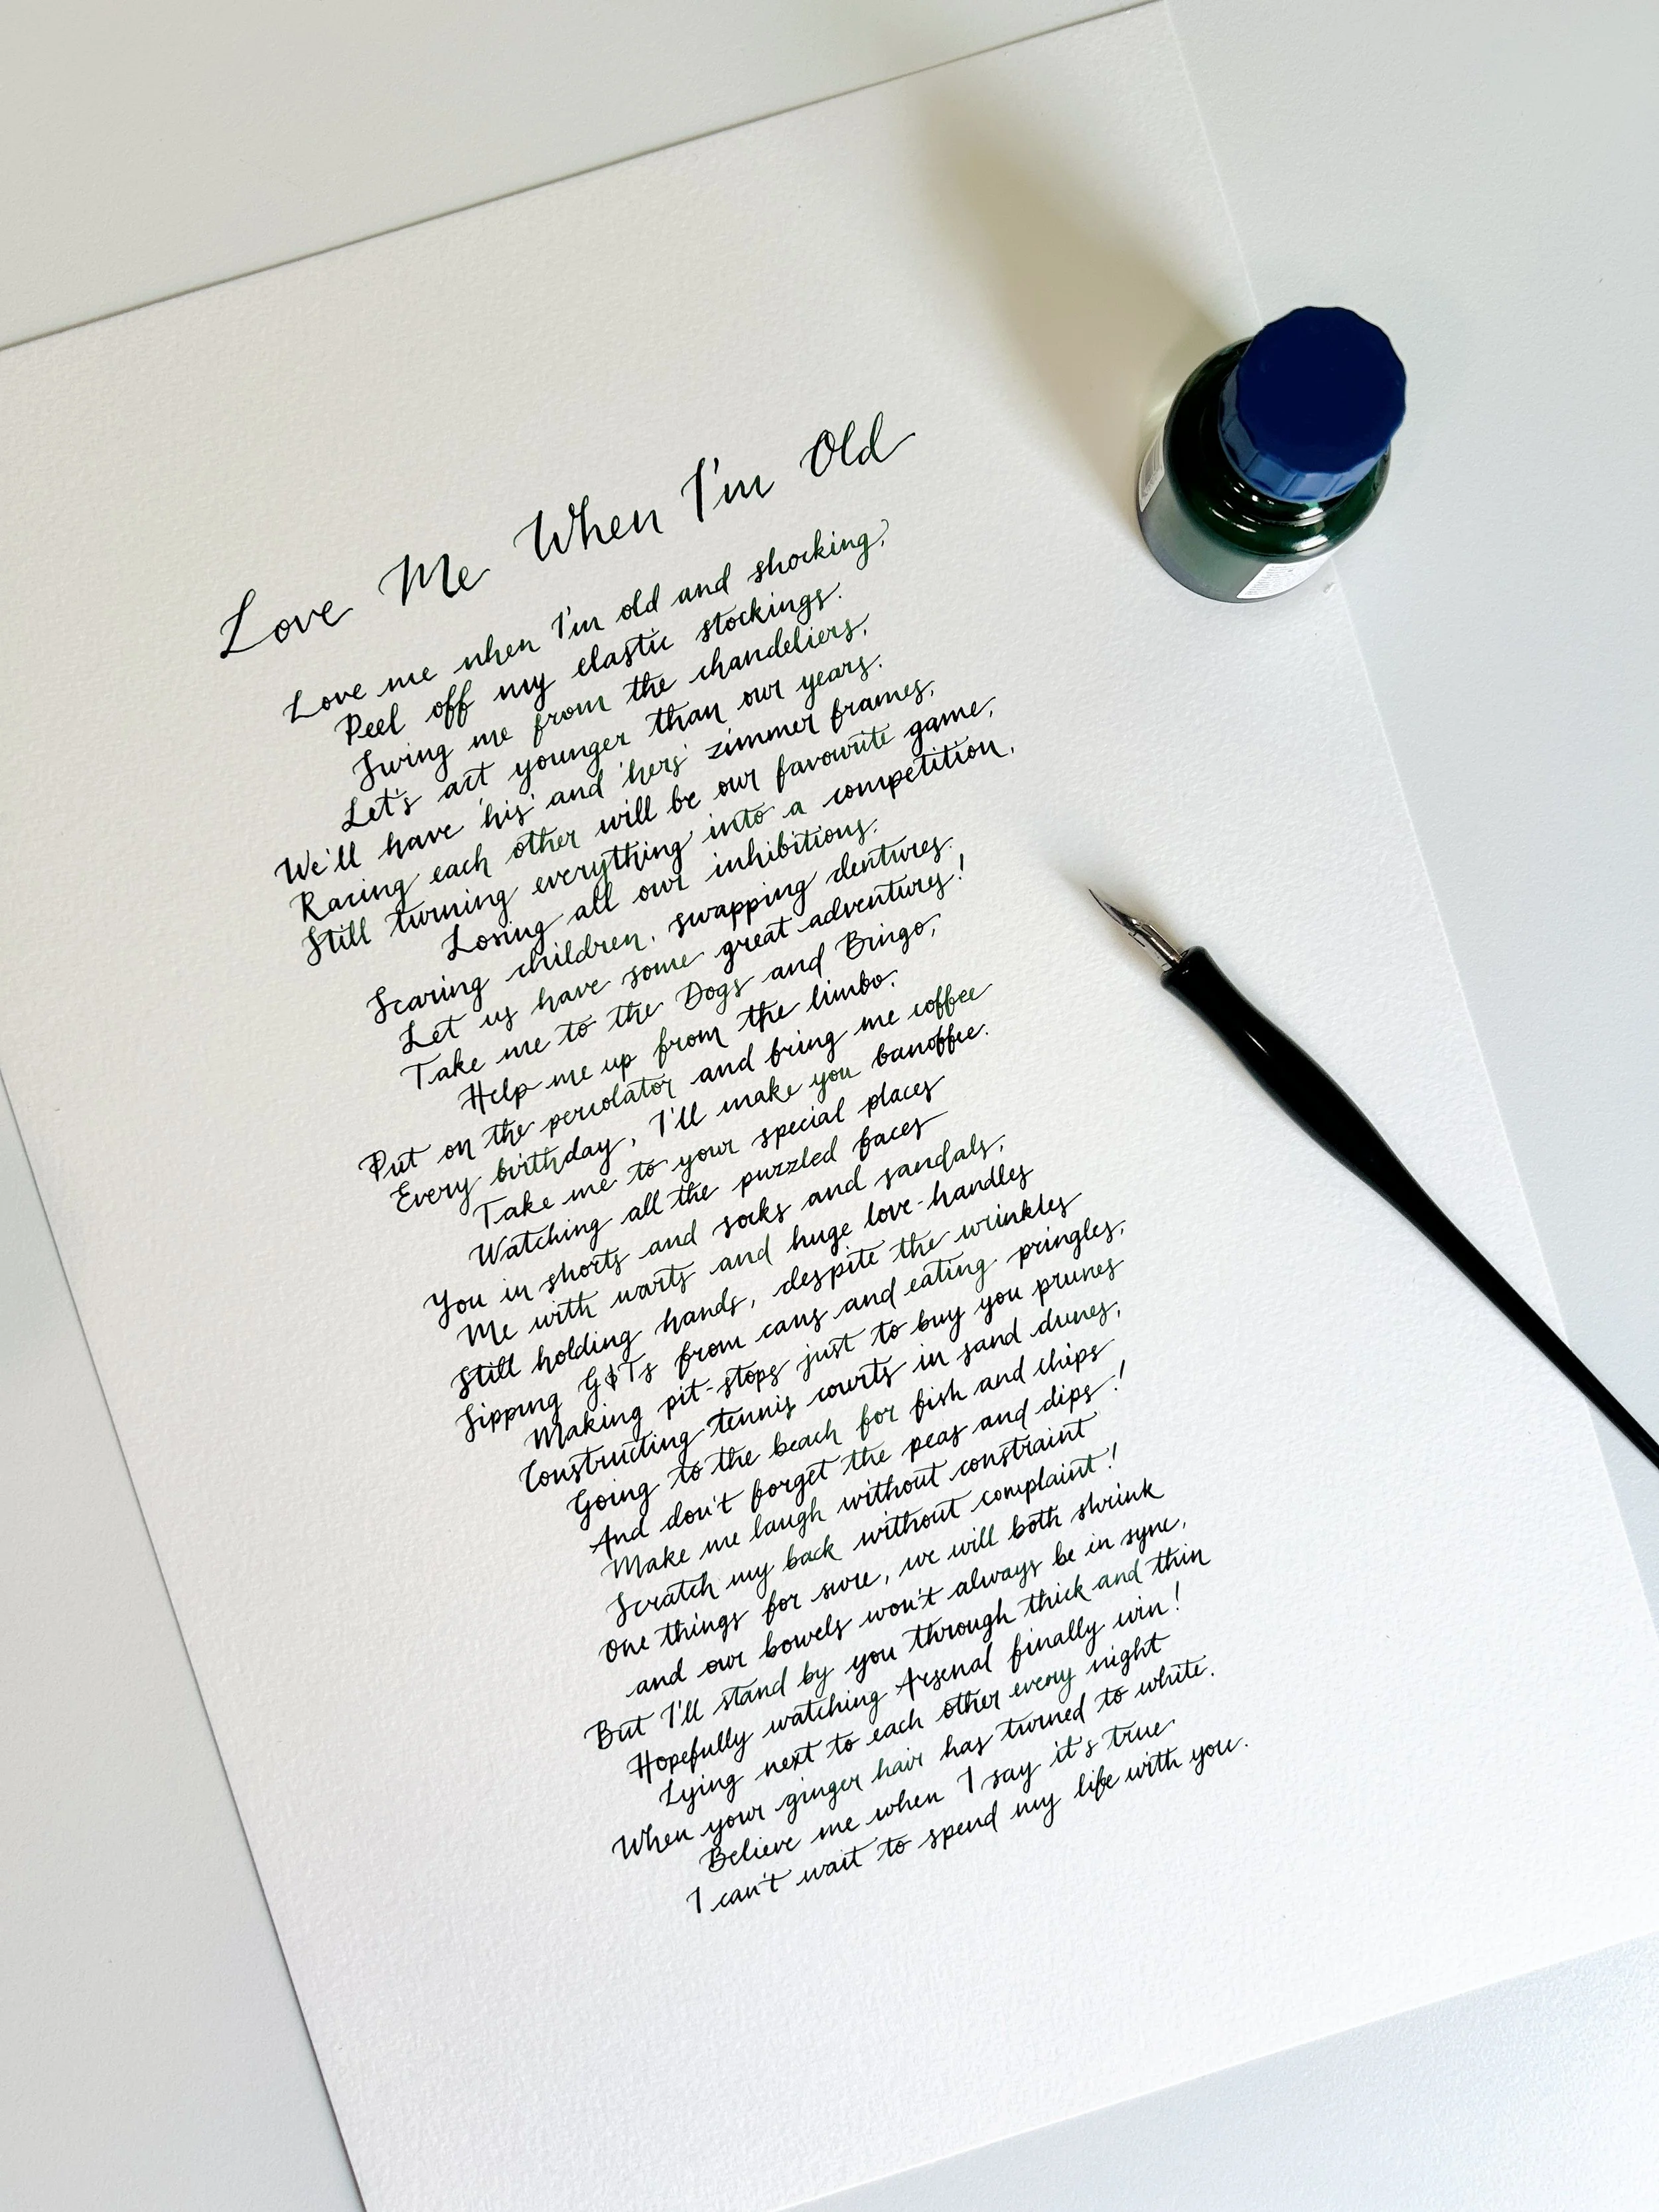 Love Me When I'm Old
Love me when I'm old and shocking,
Peel off my elastic stockings.
Swing me from the chandeliers,
Let's act younger than our years.
We'll have 'his' and 'hers' zimmer frames,
Racing each other will be our favourite game,
Still turning everything into a competition,
Losing all our inhibitions.
Scaring children, swapping dentures.
Let us have some great adventures!
Take me to the Dogs and Bingo,
Help me up from the limbo.
Put on the percolator and bring me coffee
Every birthday, I'll make you banoffee.
Take me to your special places
Watching all the puzzled faces
You in shorts and socks and sandals,
Me with warts and huge love-handles
Still holding hands, despite the wrinkles
Sipping G&Ts from cans and eating pringles,
Making pit-stops just to buy you prunes
Constructing tennis courts in sand dunes,
Going to the beach for fish and chips
And don't forget the peas and dips!
Make me laugh without constraint
Scratch my back without complaint!
One things for sure, we will both shrink
and our bowels won't always be in sync,
But I'll stand by you through thick and thin
Hopefully watching Arsenal finally win!
Lying next to each other every night
When your ginger hair has turned to white.
Believe me when I say it's true
I can't wait to spend my life with you.